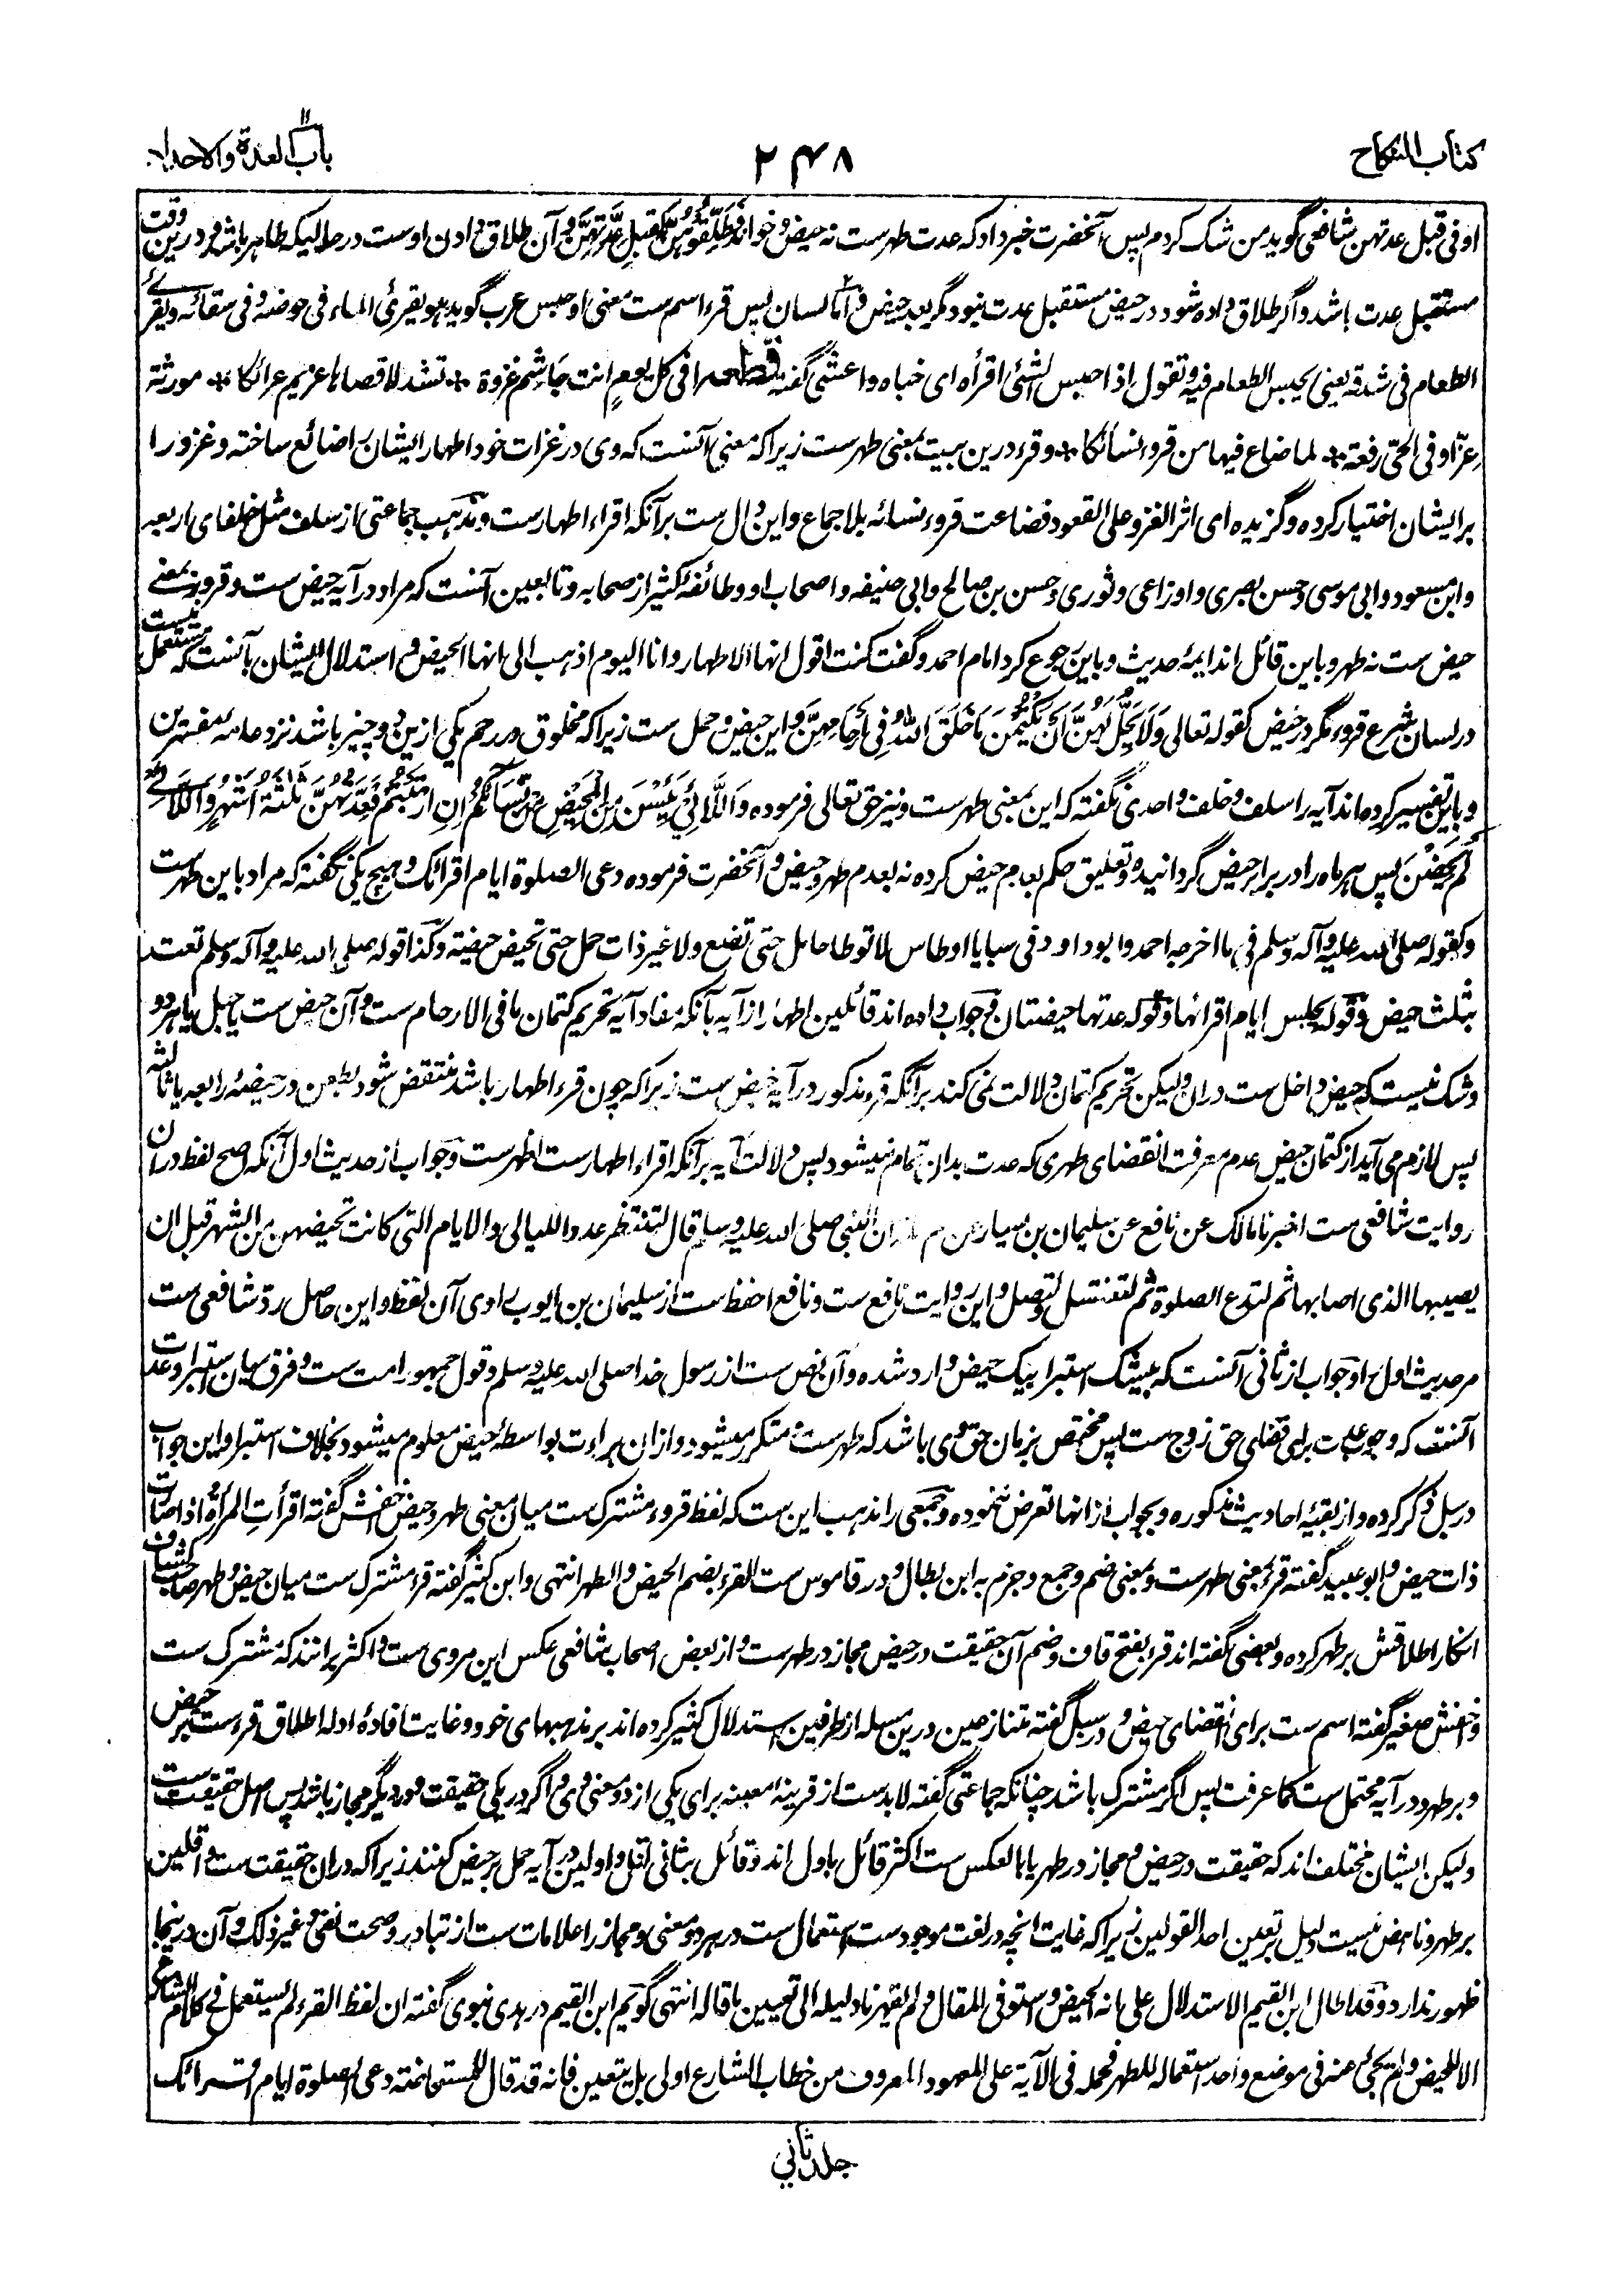 كتاب النكاح
۲۴۸
باب العدة والاحداد
او فی قبل عدتهن شافعی گوید من شک کردم پس آنحضرت خبر داد که عدت طهرست نه حیض و خواند فَطَلِّقُوهُنَّ لِقُبُلِ عِدَّتِهِنَّ و آن طلاق دادن اوست در حالیکه طاهر باشد و درین وقت
مستقبل عدت باشد و اگر طلاق داده شود در حیض مستقبل عدت نبود مگر بعد حیض و اما لسان پس قرء اسم ست معنی او حبس عرب گوید هو یقرئ الماء فی حوضه و فی سقائه و یقرئ
الطعام فی شدقه یعنی یحبس الطعام فیه و تقول اذا حبس الشئی اقرأه ای خباه و اعشی گفته قطعه افی کل یوم انت جاشم غزوة * تشد لاقصاها عزیم عزائکا * مورثة
عزًا و فی الحیّ رفعة * لما ضاع فیها من قروء نسائکا * و قرء درین بیت بمعنی طهرست زیرا که معنی آنست که وی در غزات خود اطهار ایشان را ضائع ساخته و غزو را
بر ایشان اختیار کرده و گزیده ای اثر الغزو علی القعود فضاعت قروء نسائه بلا جماع و این دال ست بر آنکه اقراء اطهارست و مذهب جماعتی از سلف مثل خلفای اربعه
و ابن مسعود و ابی موسی و حسن بصری و اوزاعی و ثوری و حسن بن صالح و ابی حنیفه و اصحاب او و طائفهٔ کثیر از صحابه و تابعین آنست که مراد در آیه حیض ست و قروء بمعنی
حیض ست نه طهر و باین قائل اند ایمهٔ حدیث و باین رجوع کرد امام احمد و گفت کنت اقول انها الاطهار و انا الیوم اذهب الی انها الحیض و استدلال ایشان بآنست که مستعمل نیست
در لسان شرع قروء مگر در حیض کقوله تعالی وَلَا يَحِلُّ لَهُنَّ اَنْ يَكْتُمْنَ مَا خَلَقَ اللهُ فِيْ اَرْحَامِهِنَّ و این حیض و حمل ست زیرا که مخلوق در رحم یکی ازین دو چیز باشد نزد عامه مفسرین
و باین تفسیر کرده اند آیه را سلف و خلف و احدی نگفته که این بمعنی طهرست و نیز حق تعالی فرموده وَاللَّائِي يَئِسْنَ مِنَ الْمَحِيْضِ مِنْ نِّسَآئِكُمْ اِنِ ارْتَبْتُمْ فَعِدَّتُهُنَّ ثَلٰثَةُ اَشْهُرٍ وَاللَّائِي
لَمْ يَحِضْنَ پس هر ماه را در برابر حیض گردانیده و تعلیق حکم بعدم حیض کرده نه بعدم طهر و حیض و آنحضرت فرموده دعی الصلوة ایام اقرائک و هیچ یکی نگفته که مراد باین طهرست
و کقوله صلی الله علیه و آله وسلم فی ما اخرجه احمد و ابو داود فی سبایا اوطاس لا توطا حامل حتی تضع و لا غیر ذات حمل حتی تحیض حیضة و کذا قوله صلی الله علیه و آله وسلم تعتد
بثلث حیض و قوله تجلس ایام اقرائها و قوله عدتها حیضتان و جواب داده اند قائلین اطهار از آیه بآنکه مفاد آیه تحریم کتمان ما فی الارحام ست و آن حیض ست یا حبل یا هر دو
و شک نیست که حیض داخل ست دران و لیکن تحریم کتمان دلالت نمی کند بر آنکه قروء مذکور در آیه حیض ست زیرا که چون قرء اطهار باشد منتقض شود بطعن در حیضهٔ رابعه یا ثالثه
پس لازم می آید از کتمان حیض عدم معرفت انقضای طهری که عدت بدان تمام میشود پس دلالت آیه بر آنکه اقراء اطهارست اظهرست و جواب از حدیث اول آنکه اصح لفظ دران
روایت شافعی ست اخبرنا مالک عن نافع عن سلیمان بن یسار عن ام سلمة ان النبی صلی الله علیه وسلم قال لتنتظر عدد اللیالی و الایام التی کانت تحیضهن من الشهر قبل ان
یصیبها الذی اصابها ثم لتدع الصلوة ثم لتغتسل و لتصل و این روایت نافع ست و نافع احفظ ست از سلیمان بن ایوب راوی آن لفظ و این حاصل رد شافعی ست
مر حدیث اول را و جواب از ثانی آنست که بیشک استبرا بیک حیض وارد شده و آن نص ست از رسول خدا صلی الله علیه وسلم و قول جمهور امت ست و فرق میان استبرا و عدت
آنست که وجوب عدت برای قضای حق زوج ست پس مختص بزمان حق وی باشد که طهرست و متکرر میشود و ازان براءت بواسطهٔ حیض معلوم میشود بخلاف استبرا و این جواب
در سبل ذکر کرده و از بقیهٔ احادیث مذکوره و بجواب از انها تعرض ننموده و جمعی را مذهب این ست که لفظ قروء مشترک ست میان معنی طهر و حیض اخفش گفته اقرأتِ المرأةُ اذا صارت
ذات حیض و ابو عبید گفته قرء بمعنی طهرست و بمعنی ضم و جمع و جزم به ابن بطال و در قاموس ست القرء بضم الحیض و الطهر انتهی و ابن کثیر گفته قرء مشترک ست میان حیض و طهر صاحب کشاف
انکار اطلاقش بر طهر کرده و بعضی گفته اند قرء بفتح قاف و ضم آن حقیقت در حیض مجاز در طهرست و از بعض اصحاب شافعی عکس این مروی ست و اکثر برانند که مشترک ست
و اخفش صغیر گفته اسم ست برای انقضای حیض و در سبل گفته متنازعین درین مسئله از طرفین استدلال کثیر کرده اند بر مذهبهای خود و غایت افادهٔ ادله اطلاق قرءست بر حیض
و بر طهر و در آیه محتمل ست کما عرفت پس اگر مشترک باشد چنانکه جماعتی گفته لابدست از قرینهٔ معینه برای یکی از دو معنی وی و اگر در یکی حقیقت و در دیگر مجاز باشد پس اصل حقیقت ست
و لیکن ایشان مختلف اند که حقیقت در حیض و مجاز در طهر یا بالعکس ست اکثر قائل باول اند و قائل بثانی اقل و اولین در آیه حمل بر حیض کنند زیرا که دران حقیقت ست و اقلین
بر طهر و ناهض نیست دلیل بر تعین احد القولین زیرا که غایت انچه در لغت موجود ست استعمال ست در هر دو معنی و مجاز را علامات ست از تبادر و صحت نفی و غیر ذلک و آن درینجا
ظهور ندارد و قد اطال ابن القیم الاستدلال علی انه الحیض و استوفی المقال و لم یقهرنا دلیله الی تعیین ما قاله انتهی گویم ابن القیم در هدی نبوی گفته ان لفظ القرء لم یستعمل فی کلام الشارع
الا للحیض و لم یجئ عنه فی موضع واحد استعماله للطهر فحمله فی الآیة علی المعهود المعروف من خطاب الشارع اولی بل یتعین فانه قد قال للمستحاضة دعی الصلوة ایام اقرائک
جلد ثانی